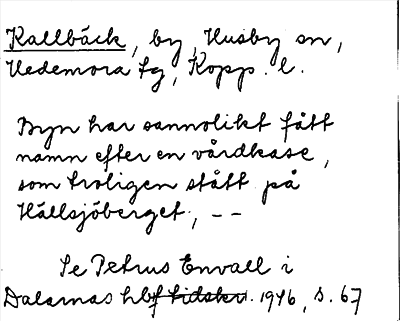 Kallbäck, by, Husby sn,
Hedemora tg, Kopp. l.
Byn har sannolikt fått
namn efter en vårdkase,
som troligen stått på
Hällsjöberget, – –
Se Petrus Envall i
Dalarnas hbf tidskr. 1946, s. 67